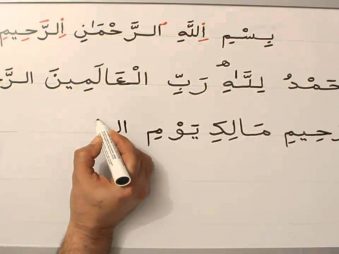 بِسْمِ اِللَّهِ الرَّحْمَٰنِ اِلرَّحِيمِ
حَمْدُ لِلَّٰهِ رَبِّ الْعَالَمِينَ الرَّ
رحِيمِ مَالِكِ يَوْمِ ال